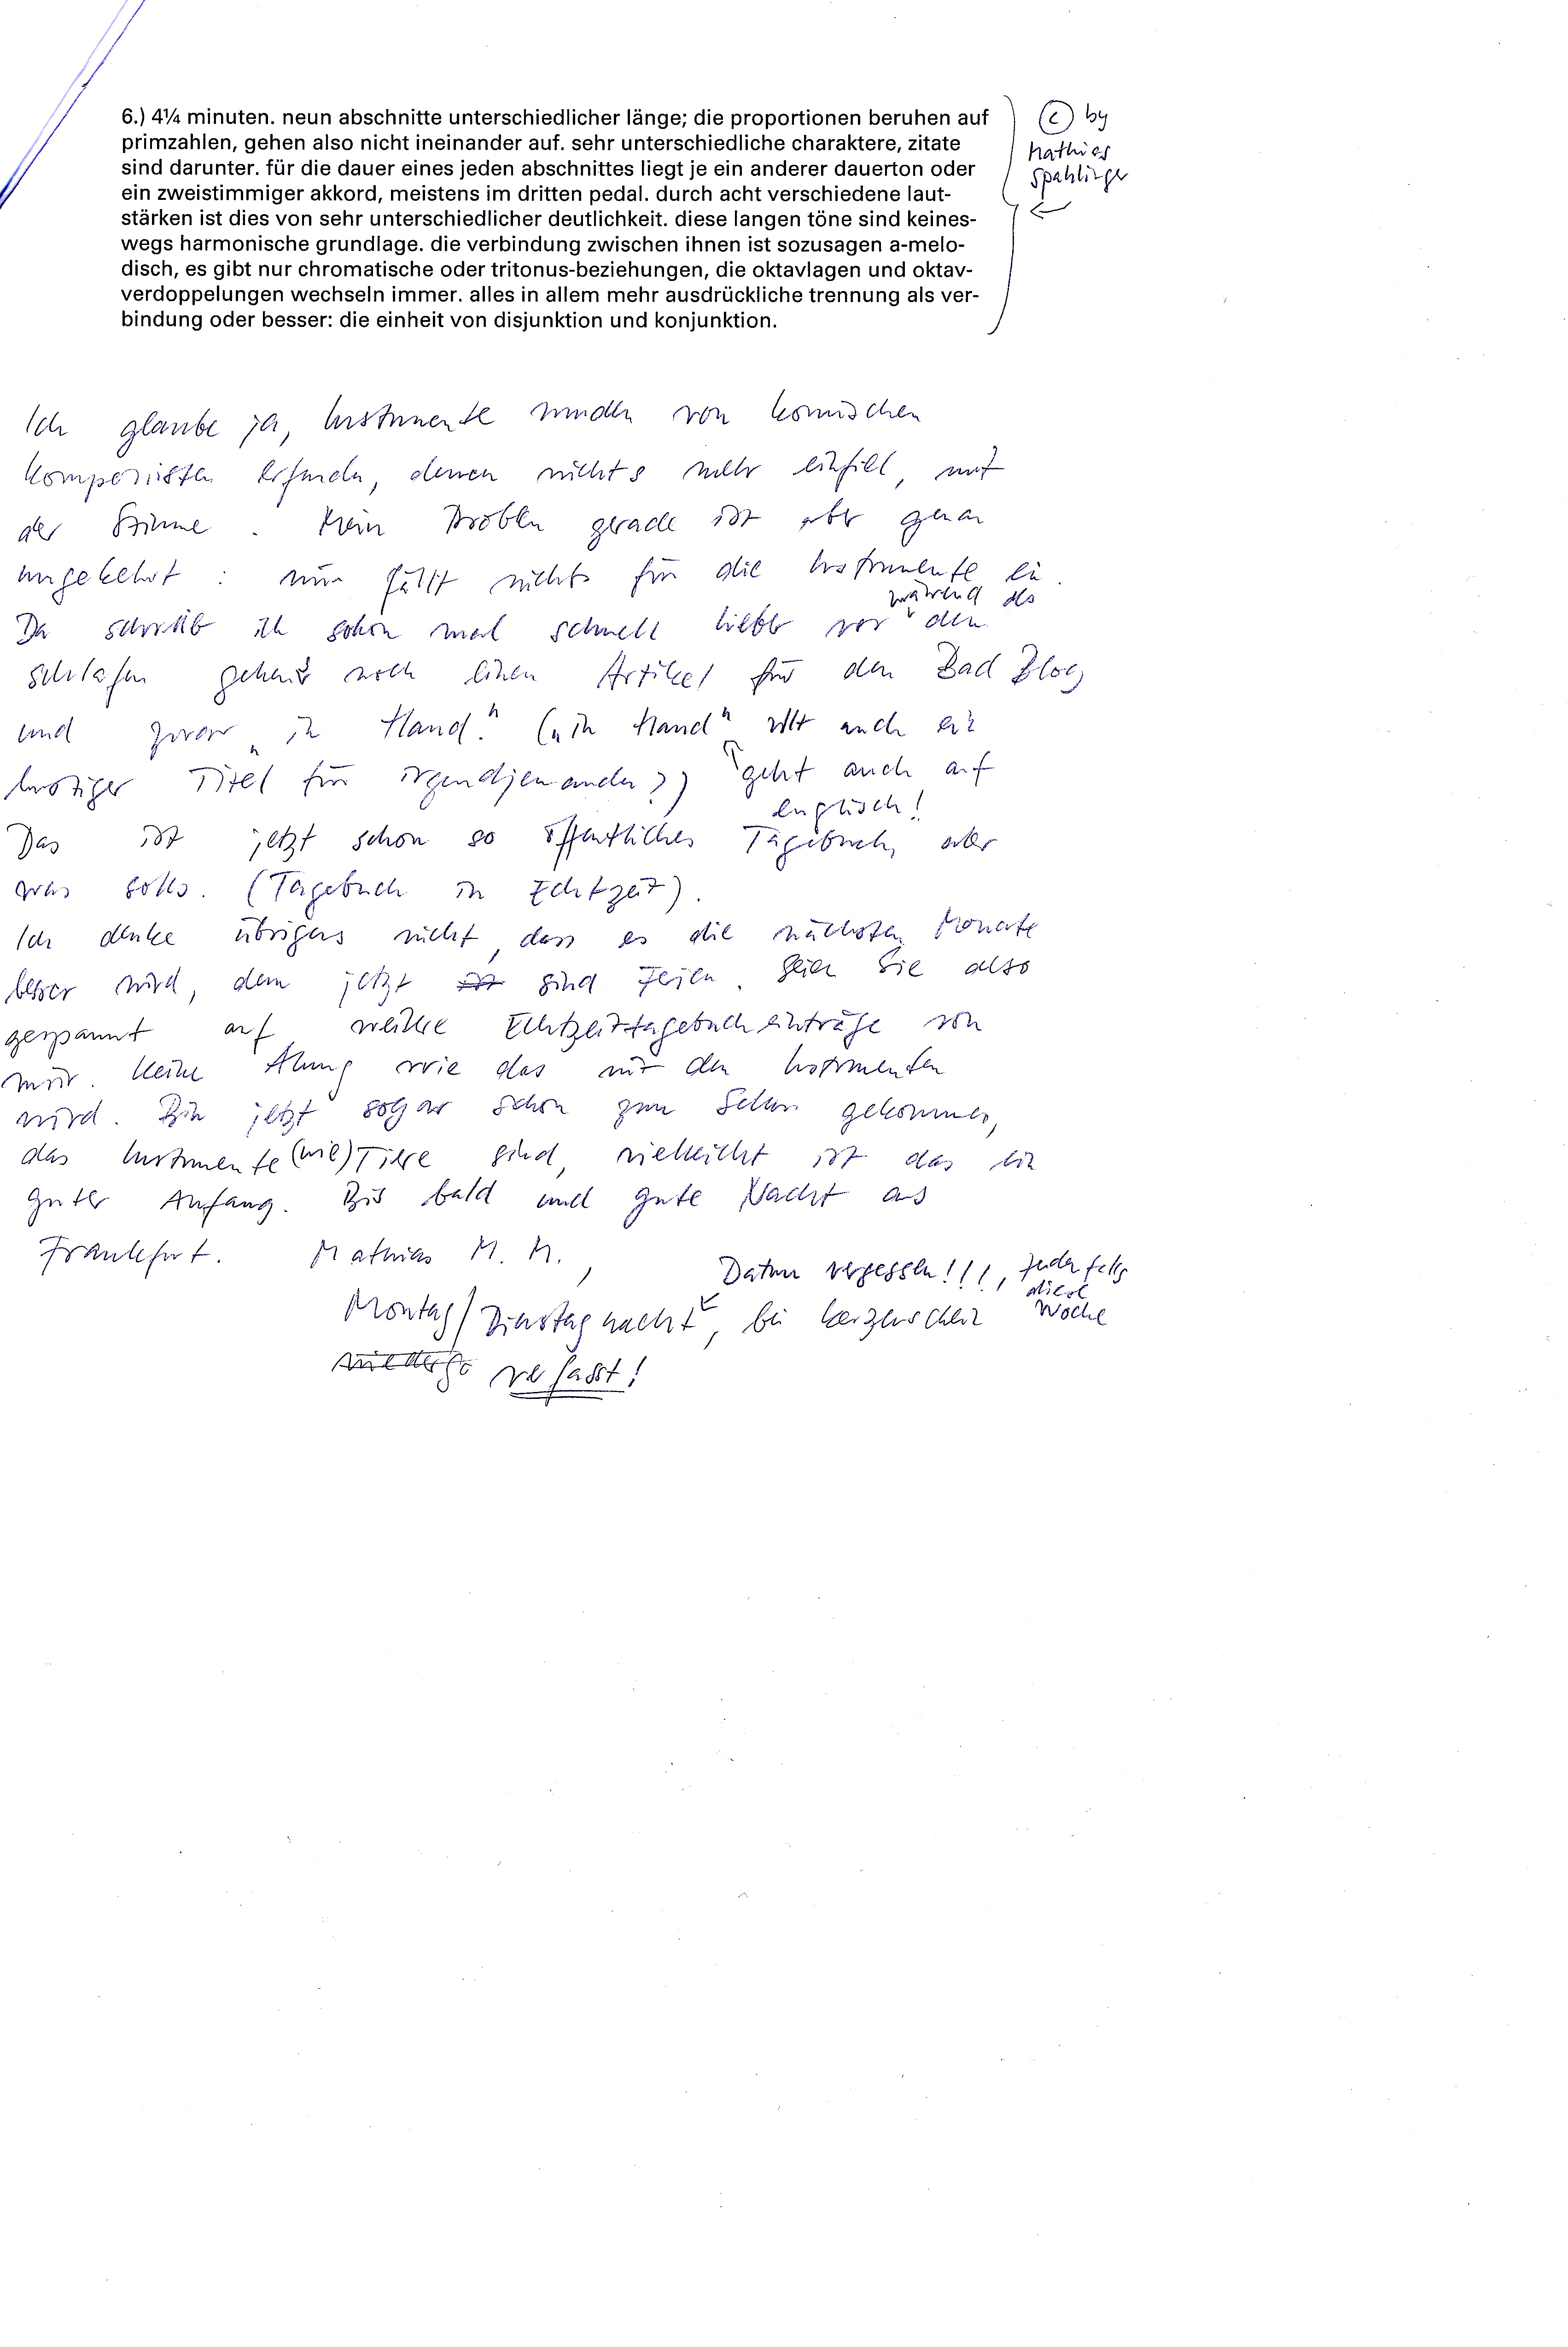 6.) 4¼ minuten. neun abschnitte unterschiedlicher länge; die proportionen beruhen auf
primzahlen, gehen also nicht ineinander auf. sehr unterschiedliche charaktere, zitate
sind darunter. für die dauer eines jeden abschnittes liegt je ein anderer dauerton oder
ein zweistimmiger akkord, meistens im dritten pedal. durch acht verschiedene laut-
stärken ist dies von sehr unterschiedlicher deutlichkeit. diese langen töne sind keines-
wegs harmonische grundlage. die verbindung zwischen ihnen ist sozusagen a-melo-
disch, es gibt nur chromatische oder tritonus-beziehungen, die oktavlagen und oktav-
verdoppelungen wechseln immer. alles in allem mehr ausdrückliche trennung als ver-
bindung oder besser: die einheit von disjunktion und konjunktion.
© by
Mathias
Spahlinger
Ich glaube ja, Instrumente wurden von komischen
Komponisten erfunden, denen nichts mehr einfiel, mit
der Stimme. Mein Problem gerade ist aber genau
umgekehrt: mir fällt nichts für die Instrumente ein.
während des
Da schreib ich schon mal schnell lieber vor den
schlafen gehens noch einen Artikel für den Bad Blog,
und zwar „in Hand." („in Hand" wär auch ein
lustiger Titel für irgendjemanden?) geht auch auf
englisch!
Das ist jetzt schon so öffentliches Tagebuch, aber
was solls. (Tagebuch in Echtzeit).
Ich denke übrigens nicht, dass es die nächsten Monate
besser wird, denn jetzt ist sind Ferien. Seien Sie also
gespannt auf weitere Echtzeittagebucheinträge von
mir. Keine Ahnung wie das mit den Instrumenten
wird. Bin jetzt sogar schon zum Schluss gekommen,
das Instrumente (wie) Tiere sind, vielleicht ist das ein
guter Anfang. Bis bald und gute Nacht aus
Frankfurt. Mathias M. M.,
Datum vergessen!!!, jedenfalls
diese
Woche
Montag/Dienstagnacht, bei Kerzenschein
verfasst!